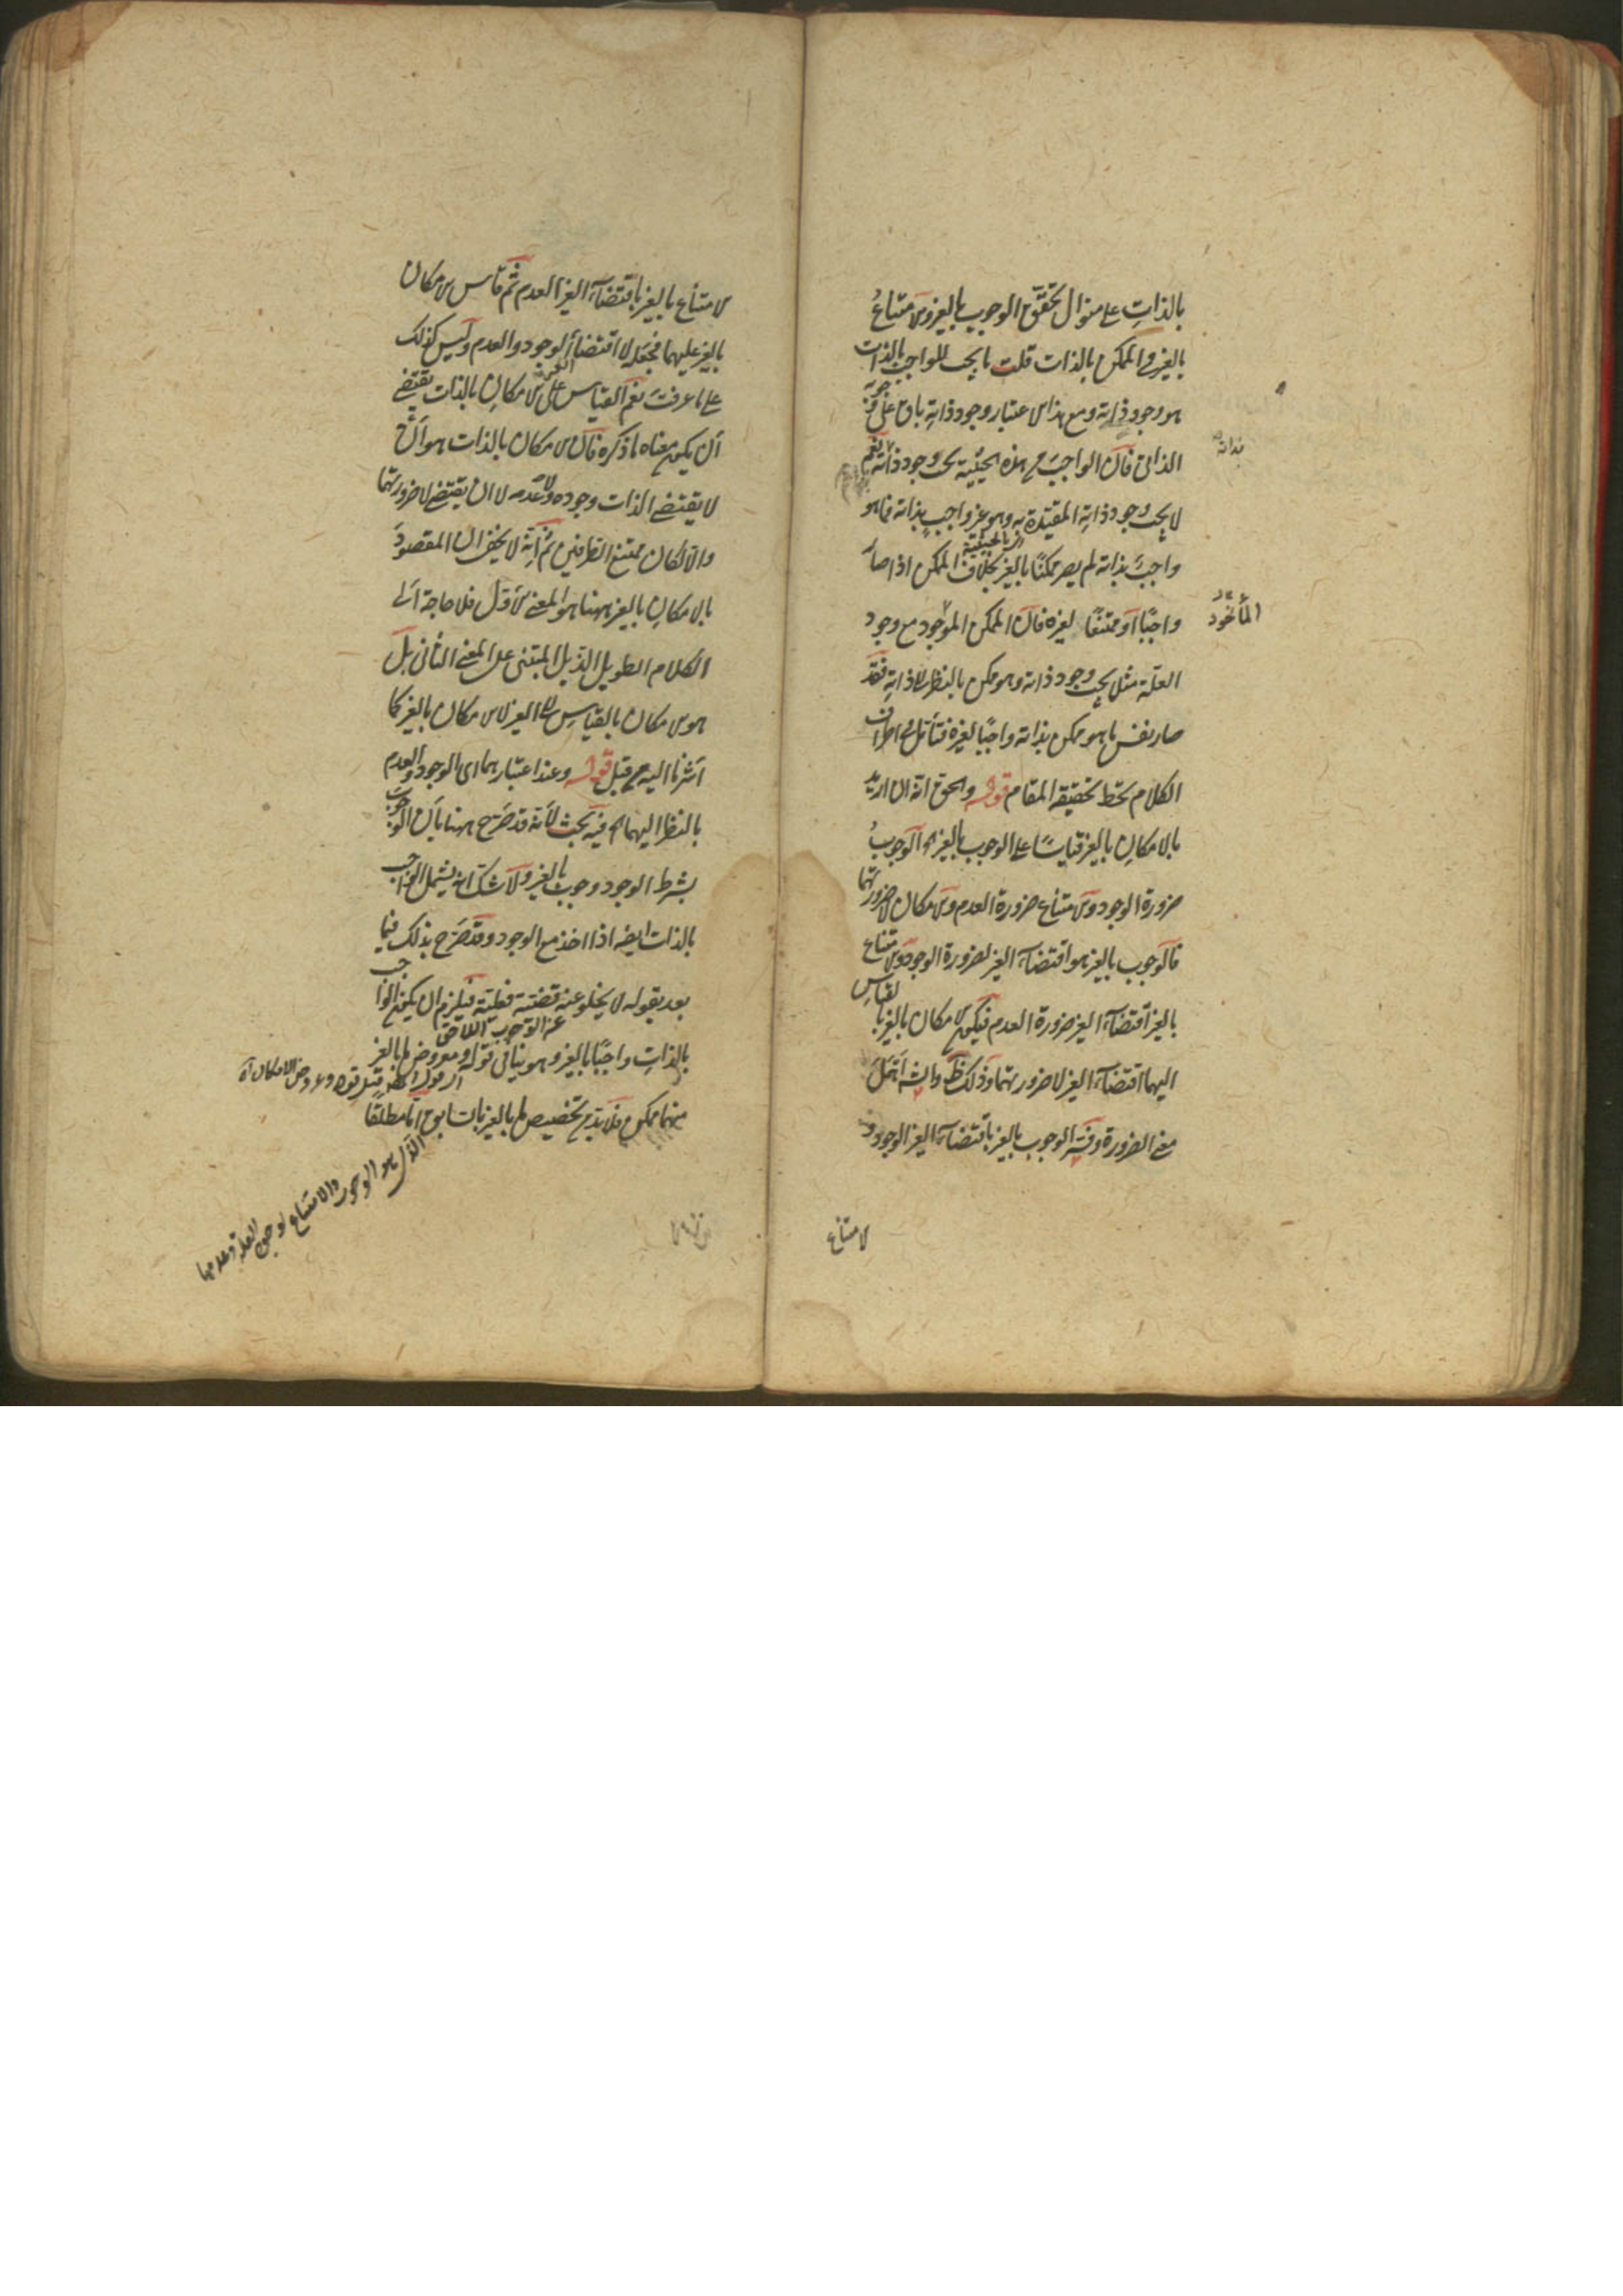 بالذاتِ على منوال تحقق الوجوب بالغير والامتناعُ
بالغير فى الممكن بالذات قلت ما يجب للواجب بالذات
هو وجود ذاته ومع هذا الاعتبار وجود ذاتِهِ باق على
الذاتى فان الواجبَ مع هذه الحيثية يجب وجود ذاته نعم
بذاته
لا يجب وجود ذاتِهِ المقيّدة به وهو غير واجبٍ بذاته فما هو
بالحيثية
واجبَ بذاته لم يصر ممكنًا بالغير بخلاف الممكن اذا صار
واجبًا او ممتنعًا لغيره فان الممكن الموجود مع وجود
المأخوذ
العلّة مثلا يجب وجود ذاته وهو ممكن بالنظر الى ذاتِهِ فقد
صار نفس ما هو ممكن بذاته واجبًا لغيره فتأمّل فى اطراف
الكلام تحط بحقيقة المقام قوله والحق انه ان اريد
بالامكانِ بالغير قياسًا على الوجوب بالغير اه الوجوبُ
ضرورة الوجود والامتناع ضرورة العدم والامكان لا ضرورتهما
فالوجوب بالغير هو اقتضاء الغير لضرورة الوجود والامتناع
بالغير اقتضاء الغير ضرورة العدم فيكون الامكان بالغير بالقياس
اليهما اقتضاء الغير لا ضرورتهما وذلك ظ والشه اهمل
معنى الضرورة وفسّر الوجوب بالغير باقتضاء الغير الوجود و
لامتناع
الامتناع بالغير باقتضاء الغير العدم ثم قاس الامكان
بالغير عليهما فجعله لا اقتضاء الوجود والعدم وليس كذلك
على ما عرفتَ نعم القياس على الامكانِ بالذات يقتضى
ان يكون معناه ما ذكره فان الامكان بالذات هو ان
لا يقتضى الذات وجوده ولا عدمه لا ان يقتضى لا ضرورتهما
والا لكان ممتنع الطرفين ثم انه لا يخفى ان المقصودَ
بالامكانِ بالغير ههنا هو المعنى الاول فلا حاجة الى
الكلام الطويل الذيل المبتنى على المعنى الثانى بل
هو الامكان بالقياسِ الى الغير لا الامكان بالغير كما
اشرنا اليه من قبل قوله وعند اعتبارهما اى الوجود والعدم
بالنظر اليهما اه فيه بحث لانه قد صَرّح ههنا بأن الوجوب
بشرط الوجود وجوب بالغير ولا شك انه يشمل الواجب
بالذات ايضا اذا اخذ مع الوجود وقد صَرّح بذلك فيما
بعد بقوله لا يخلو عنه قضيّة فعليّة فيلزم ان يكون الواجب
عن الوجوب اللاحق
بالذاتِ واجبًا بالغير وهو ينافى قوله ومعروض ما بالغير
قبيل قوله وعروض الامكان اه
منهما ممكن فلا بد من تخصيص ما بالغير بالسابق اما مطلقا
الاول هو الوجوب والامتناع لوجود العلة وعدمها